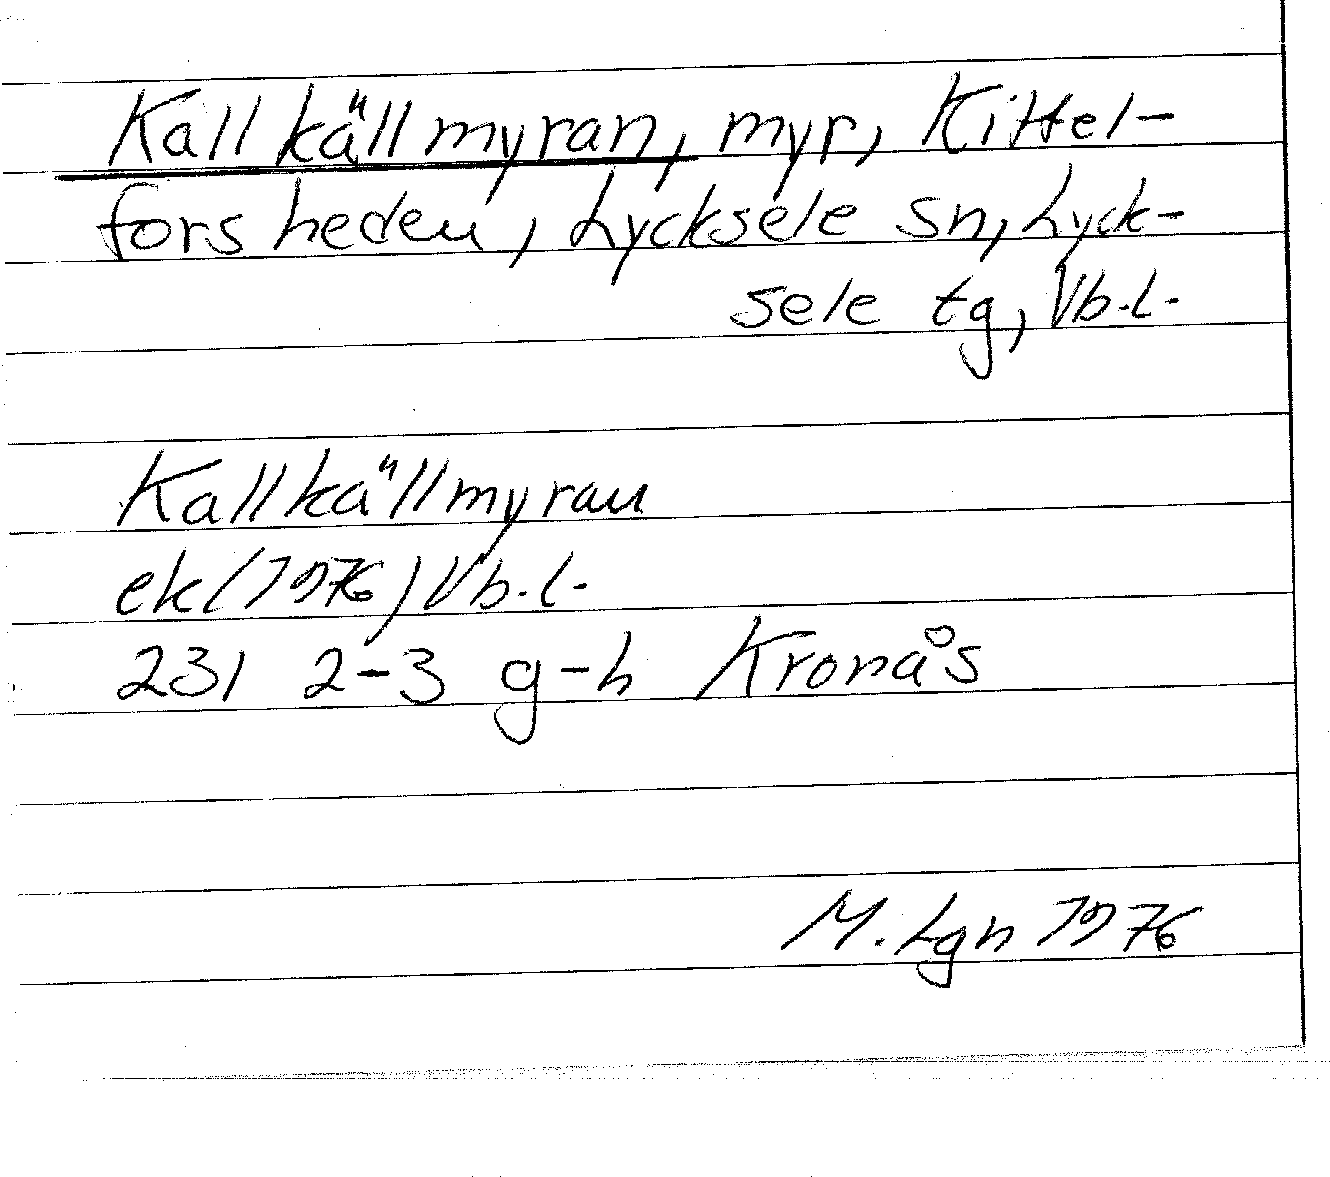 Kallkällmyran, myr, Kittel-
forsheden, Lycksele sn, Lyck-
sele tg, Vb.l.
Kallkällmyran
ek (1976) Vb.l.
231 2-3 g-h Kronås
M. Lgn 1976